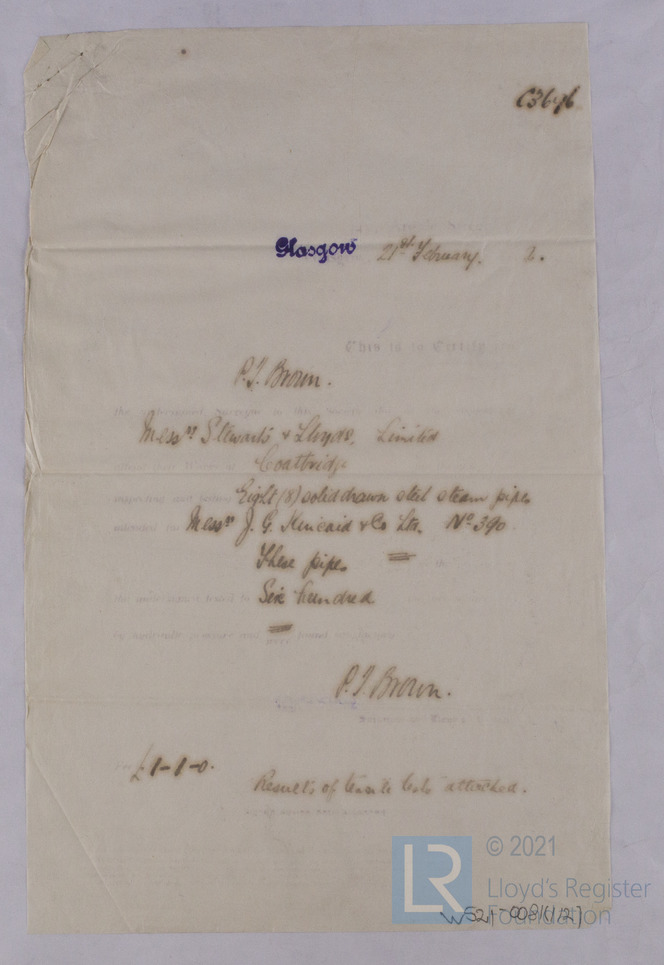 C3646
Glasgow 21st February. 2.
This is to Certify
P.T. Brown.
Messrs Stewarts & Lloyds, Limited
Coatbridge
inspection and Eight (8) solid drawn steel steam pipes
Messrs J. G. Kincaid & Co Ltd. No 390.
These pipes
the tested to Six hundred
by and found
P.T. Brown.
£1-1-0.
Results of tensile tests attached.
LR © 2021
Lloyd's Register
Foundation
W521-0081(1/2)